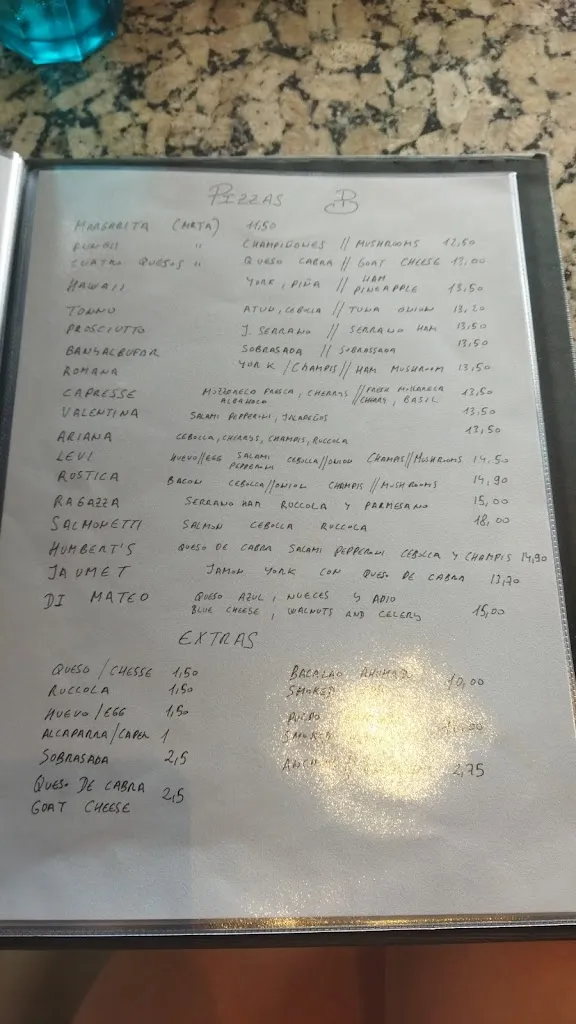 PIZZAS B
MARGARITA (META) 11,50
FUNGII " CHAMPIÑONES // MUSHROOMS 12,50
CUATRO QUESOS " QUESO CABRA // GOAT CHEESE 13,00
HAWAII YORK, PIÑA // HAM PINEAPPLE 13,50
TONNO ATUN, CEBOLLA // TUNA ONION 13,20
PROSCIUTTO J. SERRANO // SERRANO HAM 13,50
BANYALBUFAR SOBRASADA // SOBRASSADA 13,50
ROMANA YORK / CHAMPIS // HAM MUSHROOM 13,50
CAPRESSE MOZZARELA FRESCA, CHERRYS // FRESH MOZZARELA
ALBAHACA CHERRY, BASIL 13,50
VALENTINA SALAMI PEPPERONI, JALAPEÑOS 13,50
ARIANA CEBOLLA, CHERRYS, CHAMPIS, RUCCOLA 13,50
LEVI HUEVO//EGG SALAMI PEPPERONI CEBOLLA//ONION CHAMPIS//MUSHROOMS 14,50
RUSTICA BACON CEBOLLA//ONION CHAMPIS//MUSHROOMS 14,90
RAGAZZA SERRANO HAM RUCCOLA Y PARMESANO 15,00
SALMONETTI SALMON CEBOLLA RUCCOLA 18,00
HUMBERT'S QUESO DE CABRA SALAMI PEPPERONI CEBOLLA Y CHAMPIS 14,90
JAUMET JAMON YORK CON QUESO DE CABRA 13,70
DI MATEO QUESO AZUL, NUECES Y APIO
BLUE CHEESE, WALNUTS AND CELERY 15,00
EXTRAS
QUESO / CHESSE 1,50
RUCCOLA 1,50
HUEVO / EGG 1,50
ALCAPARRA/CAPER 1
SOBRASADA 2,5
QUESO DE CABRA
GOAT CHEESE 2,5
BACALAO AHUMADO
SMOKED 10,00
SMOKED
2,75